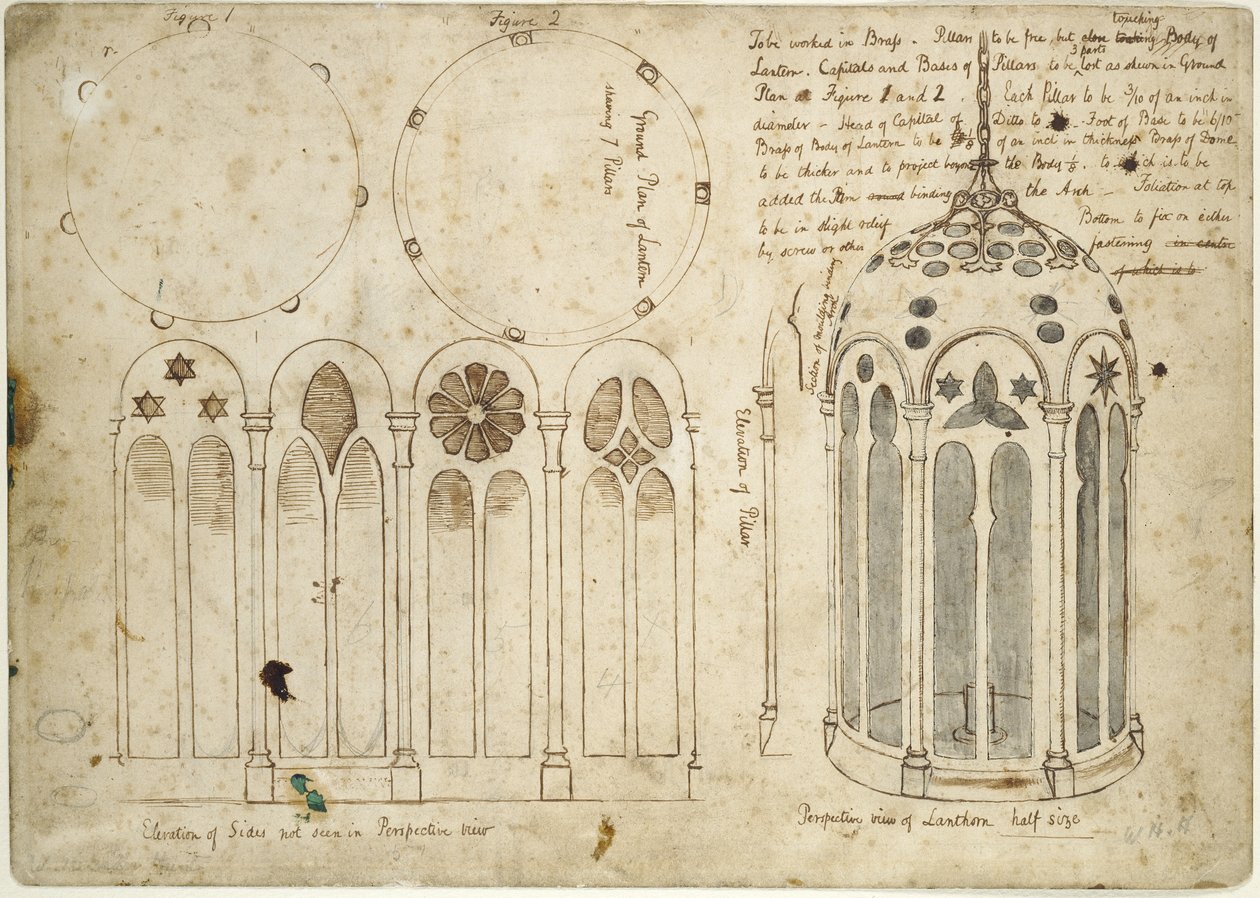 Figure 1
Figure 2
Ground Plan of Lantern
shaving 7 Pillars
touching
To be worked in Brass. Pillars to be free, but close touching Body of
3 parts
Lantern. Capitals and Bases of Pillars to be lost as shewn in Ground
Plan at Figure 1 and 2. Each Pillar to be 3/10 of an inch in
diameter – Head of Capital of Ditto to Foot of Base to be 6/10
Brass of Body of Lantern to be 1/8 of an inch in thickness Brass of Dome
to be thicker and to project beyond the Body 1/8. to which is to be
added the Rim round binding the Arch – Foliation at top
to be in slight relief Bottom to fix on either
by screw or other fastening in centre
of which is to
Section of moulding binding
Arch
Elevation of Pillar
6
5
4
Elevation of Sides not seen in Perspective view
Perspective view of Lanthorn half size
W.H.H